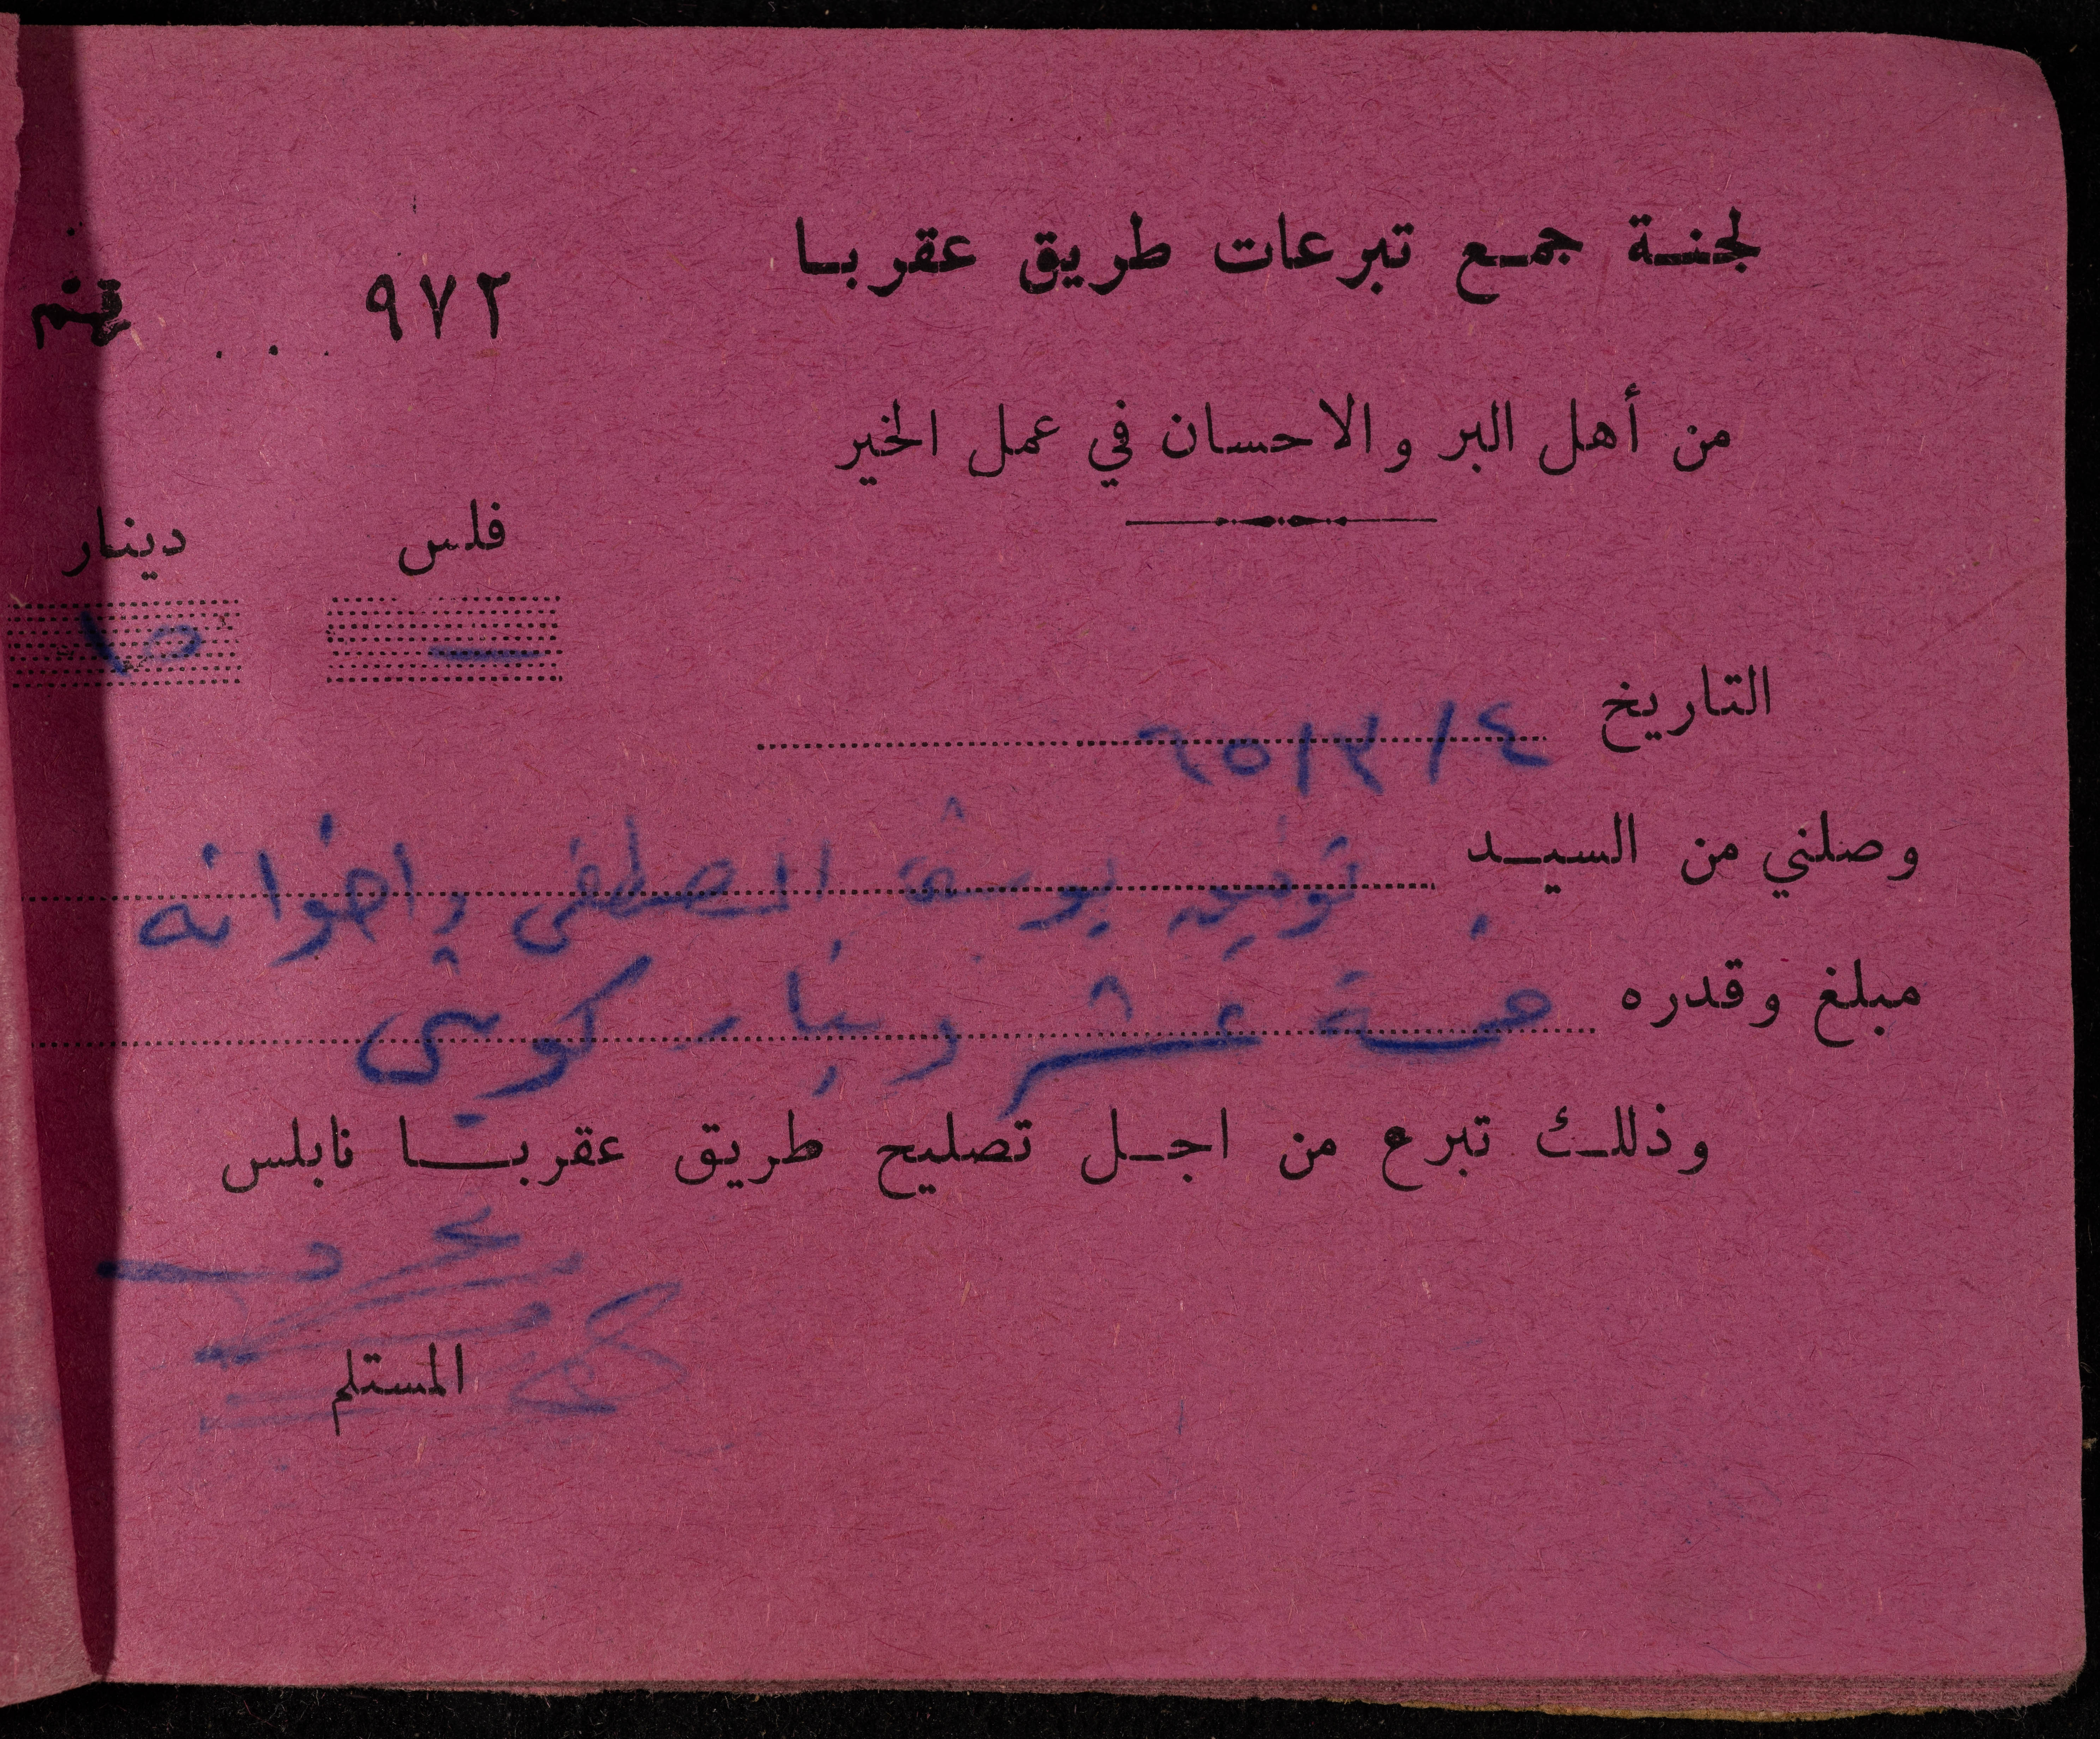 لجنة جمع تبرعات طريق عقربا
٩٧٢
من أهل البر والاحسان في عمل الخير
فلس دينار
١٥ —
التاريخ ٤/٣/٦٥
وصلني من السيد توفيق يوسف المصطفى واخوانه
مبلغ وقدره خمسة عشر دينار كويتي
وذلك تبرع من اجل تصليح طريق عقربا نابلس
المستلم